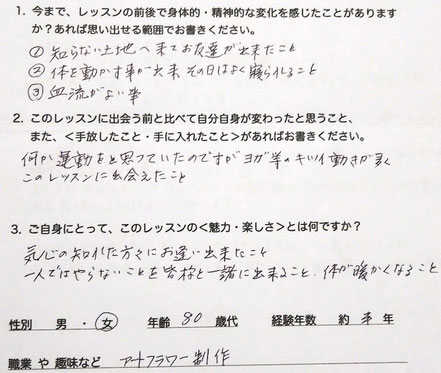 1. 今まで、レッスンの前後で身体的・精神的な変化を感じたことがあります
か?あれば思い出せる範囲でお書きください。
① 知らない土地へ来てお友達が出来たこと
② 体を動かす事が出来 その日はよく寝られること
③ 血流がよい事
2. このレッスンに出会う前と比べて自分自身が変わったと思うこと、
また、<手放したこと・手に入れたこと>があればお書きください。
何か運動をと思っていたのですがヨガ等のキツイ動きが多く
このレッスンに出会えたこと
3. ご自身にとって、このレッスンの<魅力・楽しさ>とは何ですか?
気心の知れた方々にお逢い出来たこと
一人ではやらないことを皆様と一緒に出来ること、体が暖かくなること
性別 男・女 年齢 80 歳代 経験年数 約 年
職業 や 趣味など アートフラワー制作